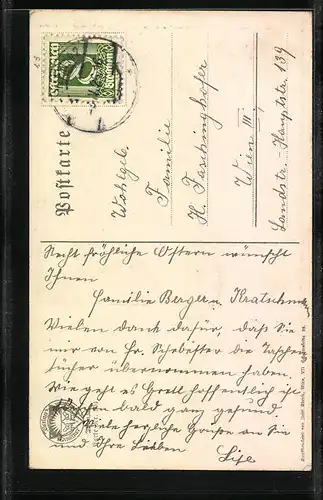 Postkarte
Wohlgeb.
Familie
H. Taschinghofer
Wien III,
Landstr.-Hauptstr. 139
Recht fröhliche Ostern wünscht
Ihnen
Familie Berger u. Kratschm
Vielen dank dafür, daß Sie
mir von Fr. die Taschen
tücher übernommen haben.
Wie geht es Gretl hoffentlich ist
schon bald ganz gesund.
Viele herzliche Grüße an Sie
und Ihre Lieben